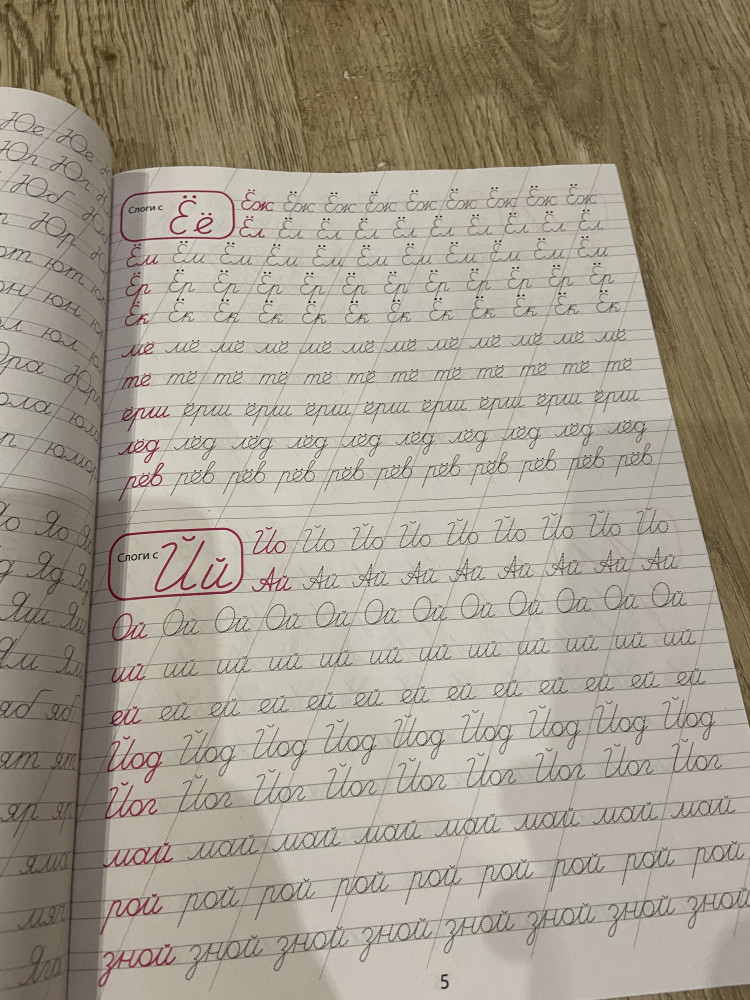 Юе Юе
Юл Юл
Юб
Юр
ют
юн
юл
Юб Ю
Яд
Ям
яб
ят
яр
яма
Яга
Слоги с Ёё
Ёж Ёж Ёж Ёж Ёж Ёж Ёж Ёж Ёж
Ёл Ёл Ёл Ёл Ёл Ёл Ёл Ёл Ёл Ёл
Ём Ём Ём Ём Ём Ём Ём Ём Ём Ём Ём
Ёр Ёр Ёр Ёр Ёр Ёр Ёр Ёр Ёр Ёр Ёр Ёр
Ёк Ёк Ёк Ёк Ёк Ёк Ёк Ёк Ёк Ёк Ёк Ёк
мё мё мё мё мё мё мё мё мё мё мё мё
тё тё тё тё тё тё тё тё тё тё тё тё
ёрш ёрш ёрш ёрш ёрш ёрш ёрш ёрш ёрш
лёд лёд лёд лёд лёд лёд лёд лёд лёд лёд
рёв рёв рёв рёв рёв рёв рёв рёв рёв рёв рёв
Слоги с Йй
Йо Йо Йо Йо Йо Йо Йо Йо Йо
Ай Ай Ай Ай Ай Ай Ай Ай Ай
Ой Ой Ой Ой Ой Ой Ой Ой Ой Ой Ой Ой
ий ий ий ий ий ий ий ий ий ий ий ий
ей ей ей ей ей ей ей ей ей ей ей ей ей
Йод Йод Йод Йод Йод Йод Йод Йод Йод
Йог Йог Йог Йог Йог Йог Йог Йог Йог
май май май май май май май май
рой рой рой рой рой рой рой рой рой
зной зной зной зной зной зной зной зной
5